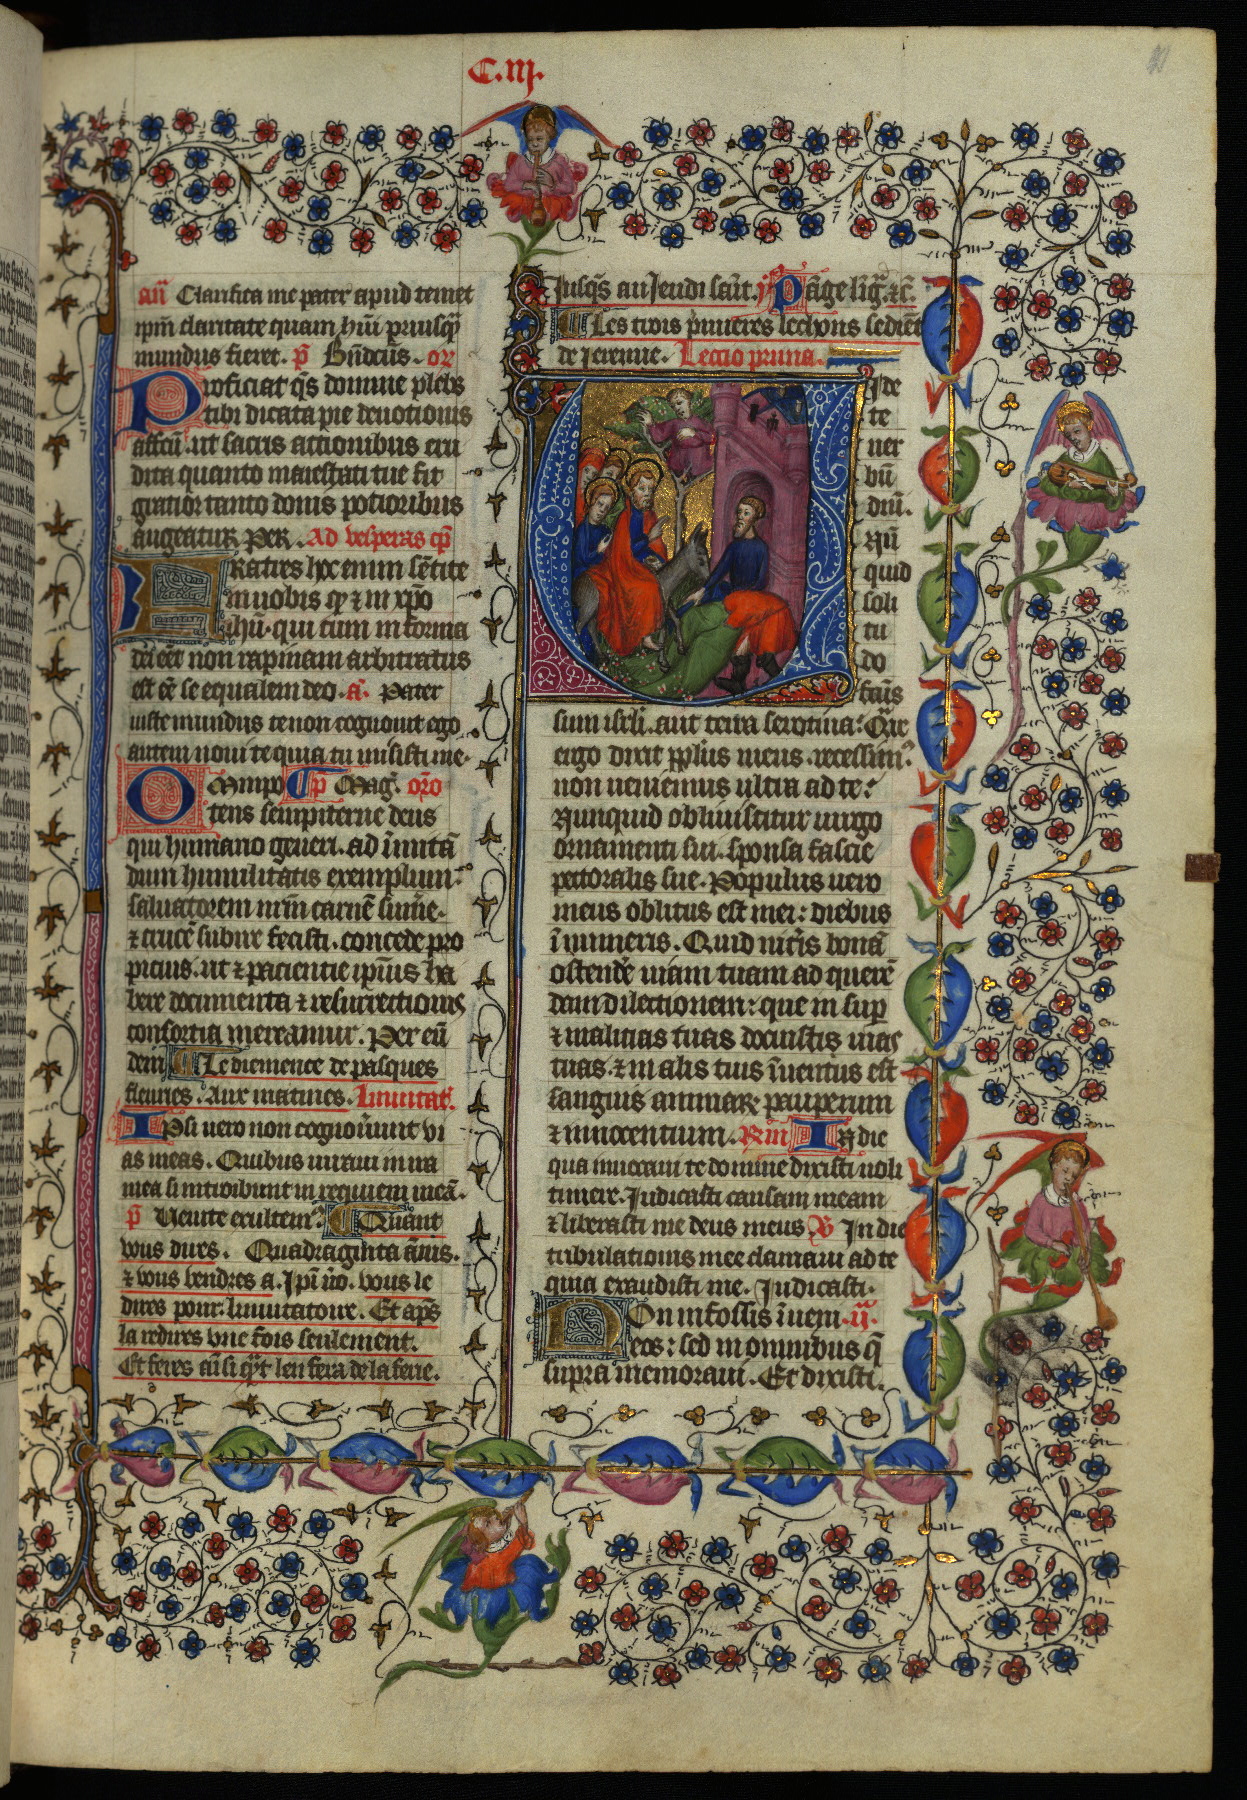 C. iij.
añ Clarifica me pater apud temet
ip̄m claritate quam hūi priusq̄
mundus fieret. p̄ Bñdc̄us. or̄
Proficiat q̄s domine plebs
tibi dicata pie deuotionis
affcū. ut sacris actionibus eru
dita quanto maiestati tue fit
gratior tanto donis potioribus
augeatur. Per. Ad vesperas cp̄
Fratres hoc enim sētite
in uobis qď ⁊ in xp̄o
ihū. qui cum in forma
dei eēt non rapinam arbitratus
est eē se equalem deo. a. Pater
iuste mundus te non cognouit ego
autem noui te quia tu misisti me.
Omnipo Cp̄ Mag. orō
tens sempiterne deus
qui humano generi. ad īmitā
dum humilitatis exemplum.
saluatorem nrm̄ carnē sum̄e.
⁊ crucē subire fecisti. concede pro
picius. ut ⁊ pacientie ip̄ius ha
bere documenta ⁊ resurrectionis
consortia mereamur. Per eū
dem Le diemence de pasques
fleuries. Aux matines. Inuitat.
Ipsi uero non cognou̅unt vi
as meas. Quibus iuraui in ira
mea si introibunt in requiem meā.
p̄ Uenite exultem. Quant
vous dires. Quadraginta ānis.
⁊ vous vendres a. Ip̄i ūo. vous le
dires pour. Inuitatoire. Et ap̄s
la redires vne fois seulement.
Et feres aūsi q̄t len fera de la ferie.
Jusq̄s au Jeudi sāīt. Pāge līg. ⁊c̄.
Les trois p̄mieres lechons sediēt
de Jeremie. Lectio prima.
Uide
te
uer
bū
dnī.
Nū
quid
soli
tu
do
factus
sum isrl̄. aut terra serotina? Q̄re
ergo dixit ppl̄us meus. recessim⁹
non ueniemus ultra ad te?
Nunquid obliuiscitur uirgo
ornamenti sui. sponsa fascie
pectoralis sue. Populus uero
meus oblitus est mei: diebus
īnumeris. Quid niteris bonā
ostendē uiam tuam ad querē
dam dilectionem: que in sup̄
⁊ malitias tuas docuisti uias
tuas. ⁊ in alis tuis īuentus est
sanguis animaꝝ pauperum
⁊ innocentium. R̄m In die
qua inuocaui te domine dixisti noli
timere. Iudicasti causam meam
⁊ liberasti me deus meus V̄ In die
tribulationis mee clamaui ad te
quia exaudisti me. Iudicasti.
Non in fossis īueni. ij.
eos: sed in omnibus q̄
supra memoraui. Et dixisti.